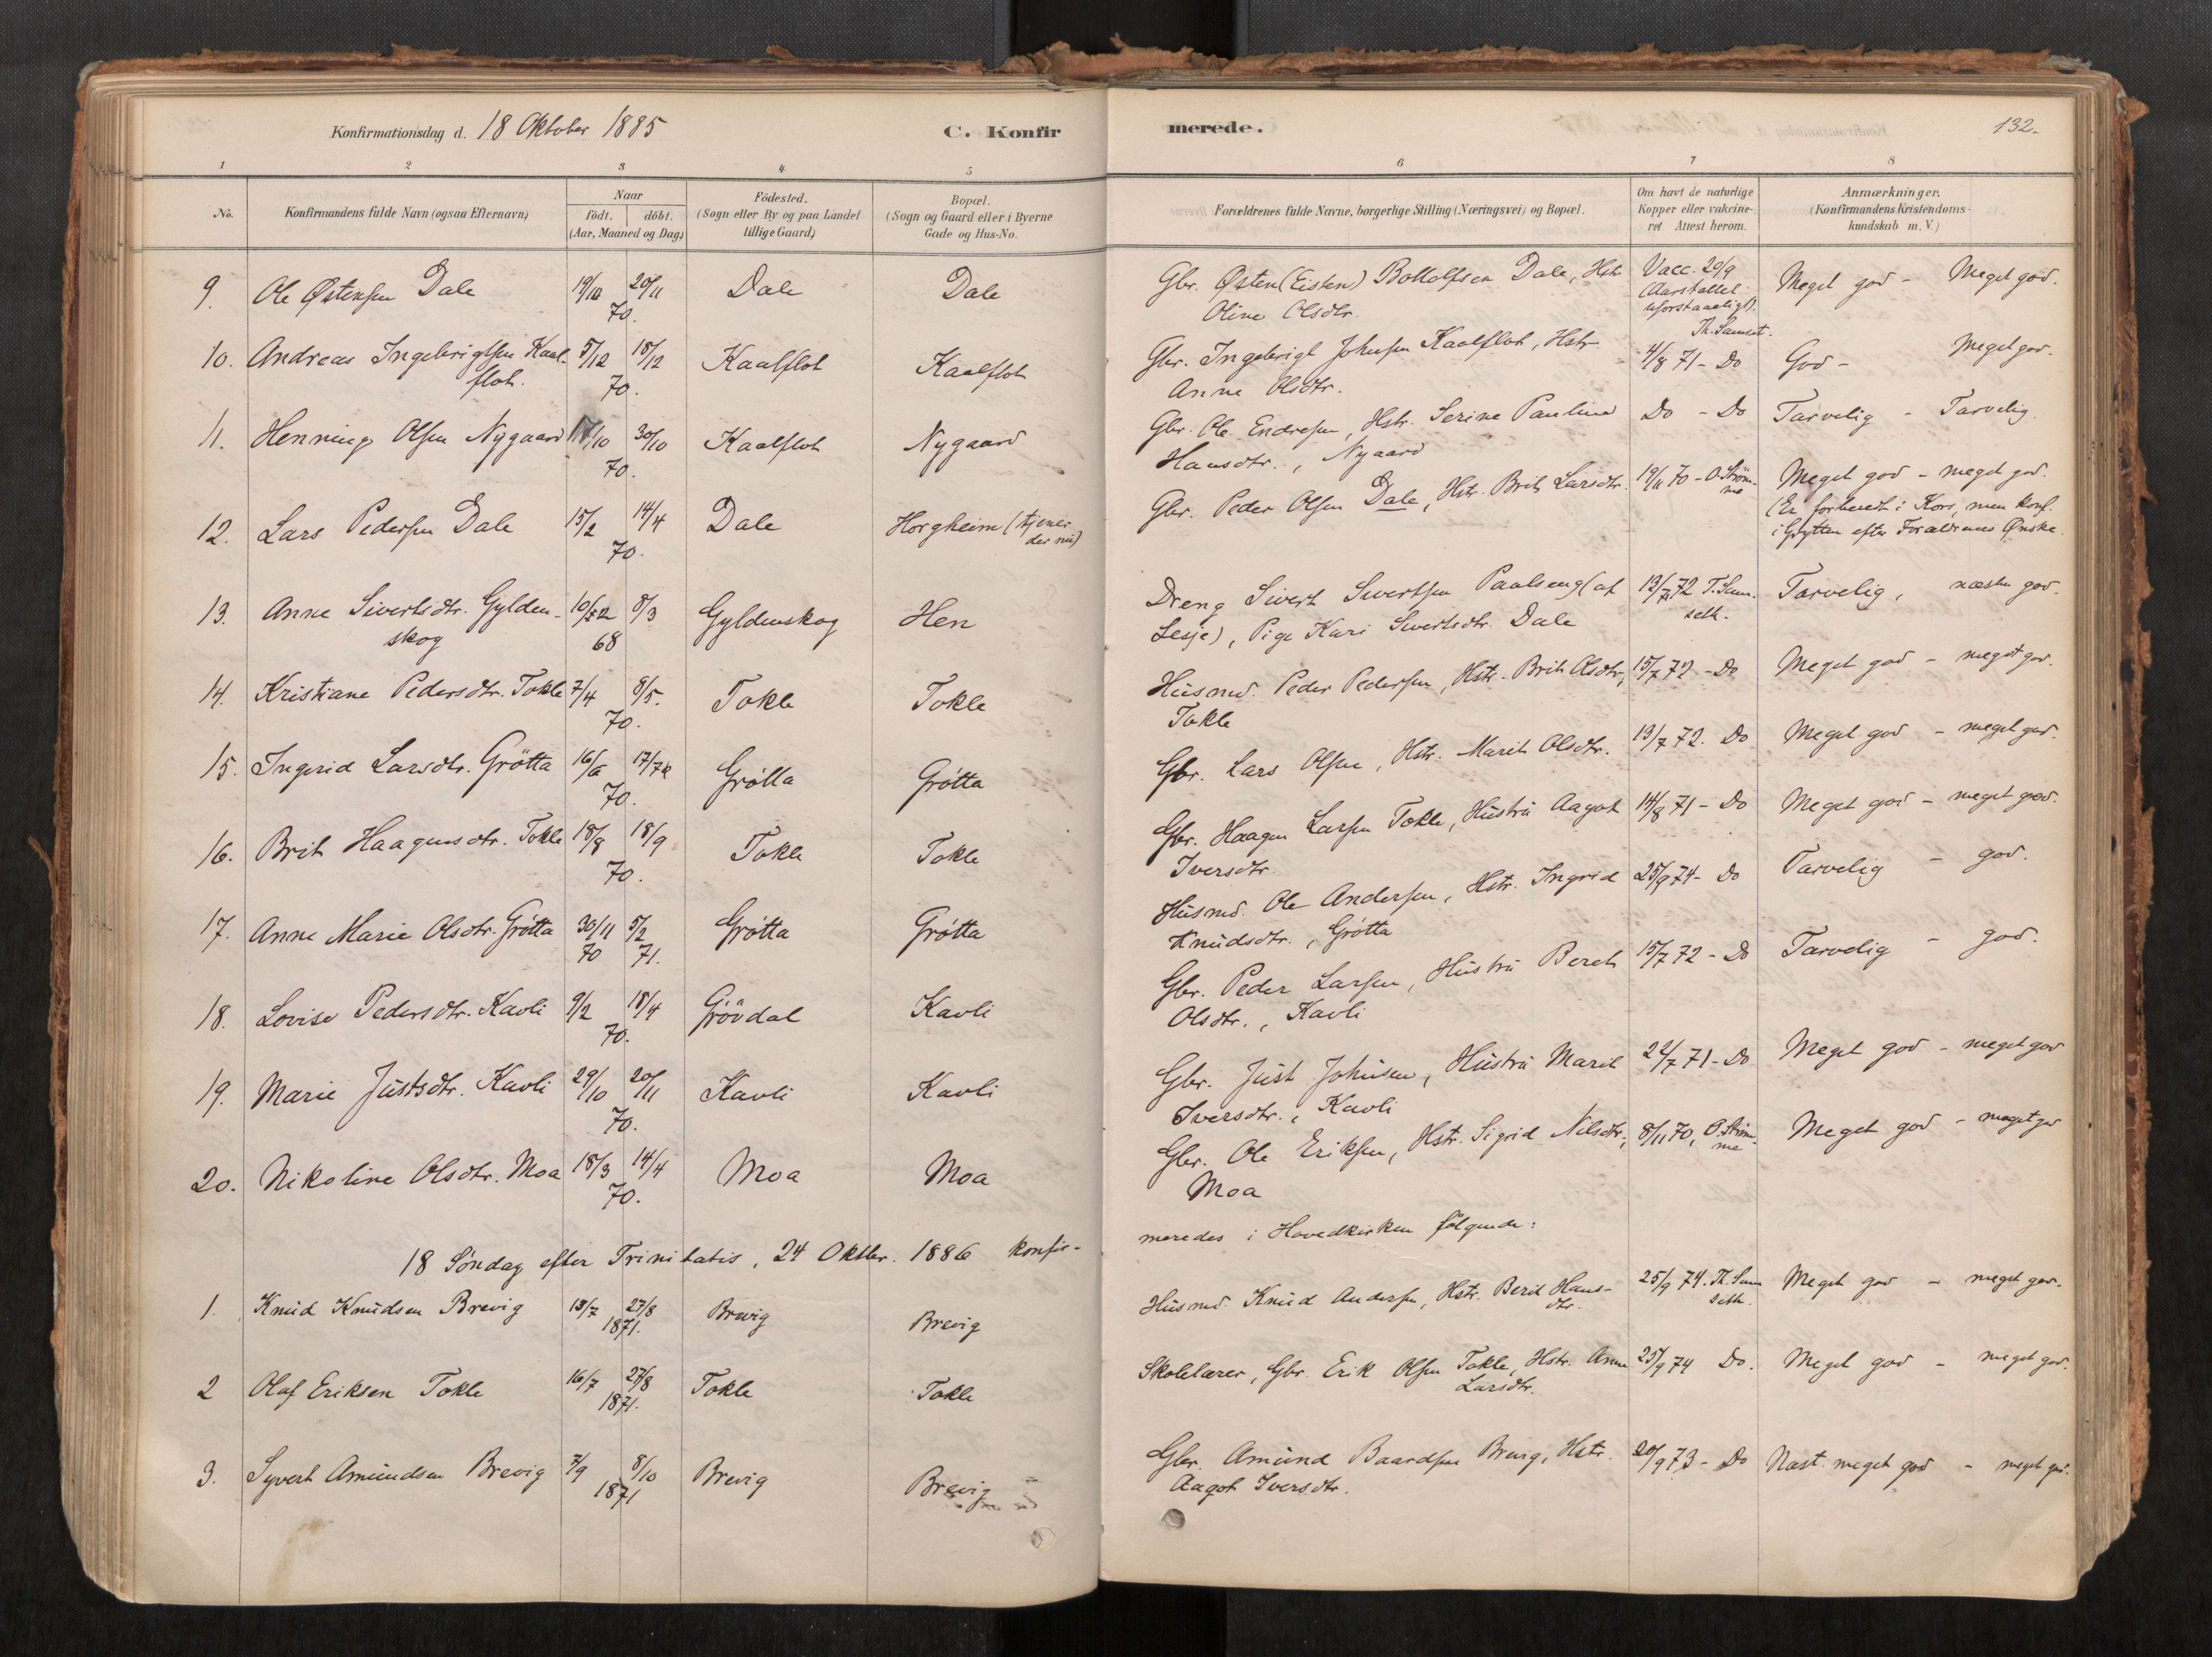 Konfirmationsdag d. 18 Oktober 1885 C. Konfirmerede. 132.
1 2 3 4 5 6 7 8
No. Konfirmandens fulde Navn (ogsaa Efternavn) Naar födt. döbt. (Aar, Maaned og Dag) Födested. (Sogn eller By og paa Landet tillige Gaard) Bopæl. (Sogn og Gaard eller i Byerne Gade og Hus-No. Forældrenes fulde Navne, borgerlige Stilling (Næringsvei) og Bopæl. Om havt de naturlige Kopper eller vakcineret. Attest herom. Anmærkninger. (Konfirmandens Kristendomskundskab m. V.)
9. Ole Østensen Dale 19/10 20/11 70. Dale Dale Gbr. Østen (Eisten) Bottolfsen Dale, Hstr. Oline Olsdtr. Vacc. 20/9 (Aarstallet uforstaaeligt). Th. Samset. Meget god - Meget god.
10. Andreas Ingebrigtsen Kaalflot. 5/12 18/12 70. Kaalflot Kaalflot Gbr. Ingebrigt Johnsen Kaalflot, Hstr Anne Olsdtr. 4/8 71 - Do God - Meget god.
11. Henning Olsen Nygaard /10 30/10 70. Kaalflot Nygaard Gbr. Ole Endresen, Hstr. Serine Pauline Hansdtr., Nygaard Do - Do Tarvelig - Tarvelig.
12. Lars Pedersen Dale 15/2 14/4 70. Dale Horgheim (tjener der nu) Gbr. Peder Olsen Dale, Hstr. Brit Larsdtr. 19/11 70 - O. Strømme Meget god - meget god. (Er forberedt i Kors, men konf. i Grytten efter Forældrenes Ønske.
13. Anne Sivertsdtr. Gyldenskog 10/2 8/3 68 Gyldenskog Hen Dreng Sivert Sivertsen Paalseng (af Lesje), Pige Kari Sivertsdtr. Dale 13/7 72 T. Samseth. Tarvelig, næsten god.
14. Kristiane Pedersdtr. Tokle 7/4 8/5. 70. Tokle Tokle Husmd. Peder Pedersen, Hstr. Brit Olsdtr., Tokle 15/7 72 - Do Meget god - meget god.
15. Ingerid Larsdtr. Grötta 16/6 17/7 70. Grötta Grötta Gbr. Lars Olsen, Hstr. Marit Olsdtr. 13/7 72. Do Meget god - meget god.
16. Brit Haagensdtr. Tokle 18/8 18/9 70. Tokle Tokle Gbr. Haagen Larsen Tokle, Hustru Aagot Iversdtr. 14/8 71 - Do Meget god - meget god.
17. Anne Marie Olsdtr. Grötta 30/11 70 5/2 71. Grötta Grötta Husmd. Ole Andersen, Hstr. Ingrid Knudsdtr., Grötta 25/9 74 - Do Tarvelig - god.
18. Lovise Pedersdtr. Kavli 9/2 18/4 70. Grövdal Kavli Gbr. Peder Larsen, Hustru Beret Olsdtr., Kavli 15/7 72 - Do Tarvelig - god.
19. Marie Justsdtr. Kavli 29/10 20/11 70. Kavli Kavli Gbr. Just Johnsen, Hustru Marit Iversdtr., Kavli 22/7 71 - Do Meget god - meget god
20. Nikoline Olsdtr. Moa 18/3 14/4 70. Moa Moa Gbr. Ole Eriksen, Hstr. Sigrid Nilsdtr., Moa 8/11 70, O. Strømme Meget god - meget god
18 Söndag efter Trinitatis, 24 Oktbr. 1886 konfirmeredes i Hovedkirken følgende:
1. Knud Knudsen Brevig 13/7 27/8 1871. Brevig Brevig Husmd. Knud Andersen, Hstr. Berit Hansdtr. 25/9 74. Th. Samseth. Meget god - meget god.
2 Olaf Eriksen Tokle 16/7 27/8 1871. Tokle Tokle Skolelærer, Gbr. Erik Olsen Tokle, Hstr. Anne Larsdtr. 25/9 74 Do. Meget god - meget god.
3. Syvert Amundsen Brevig 7/9 8/10 1871 Brevig Brevig Gbr. Amund Baardsen Brevig, Hstr. Aagot Iversdtr. 20/9 73 - Do Næst. meget god - meget god.